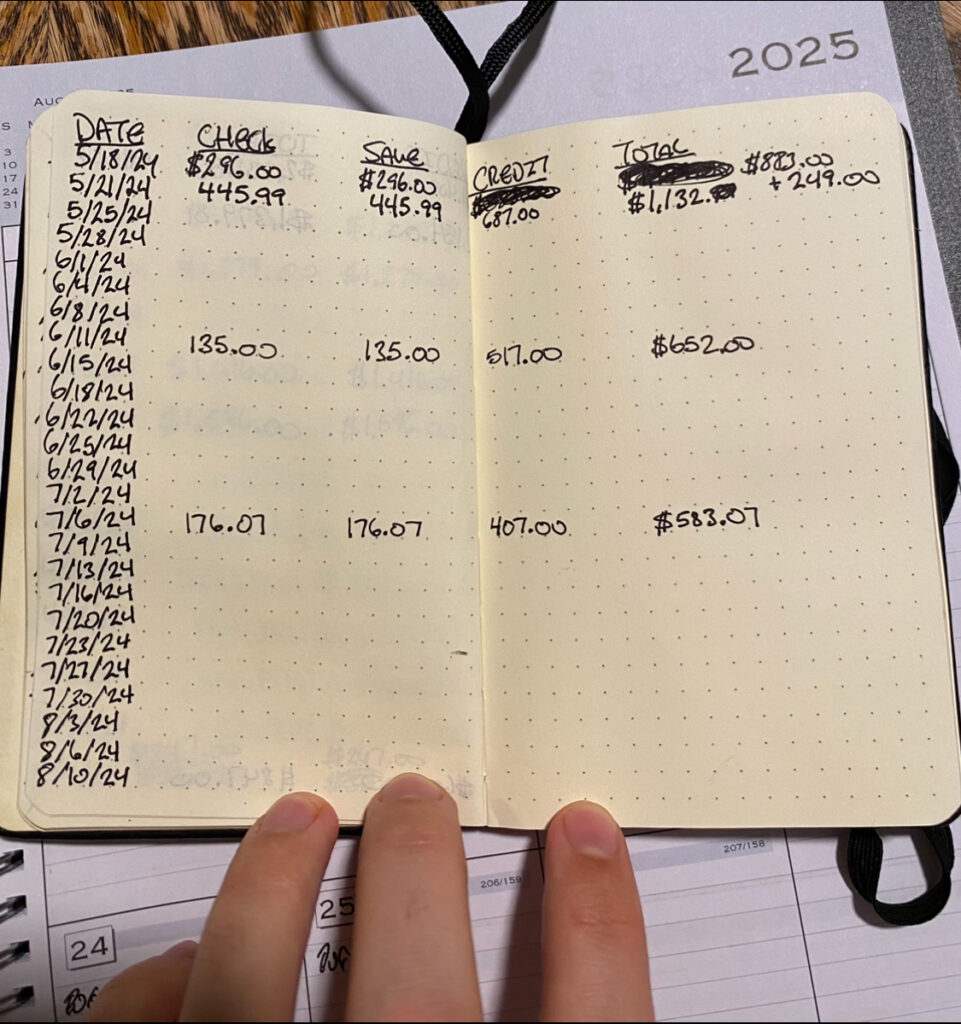 2025
AUG
S
3
10
17
24
31
DATE CHECK SAVE CREDIT TOTAL
5/18/24 $296.00 $296.00 $883.00
5/21/24 445.99 445.99 687.00 $1,132. + 249.00
5/25/24
5/28/24
6/1/24
6/4/24
6/8/24
6/11/24 135.00 135.00 517.00 $652.00
6/15/24
6/18/24
6/22/24
6/25/24
6/29/24
7/2/24
7/6/24 176.07 176.07 407.00 $583.07
7/9/24
7/13/24
7/16/24
7/20/24
7/23/24
7/27/24
7/30/24
8/3/24
8/6/24
8/10/24
$847.00
206/159 207/158
24 25